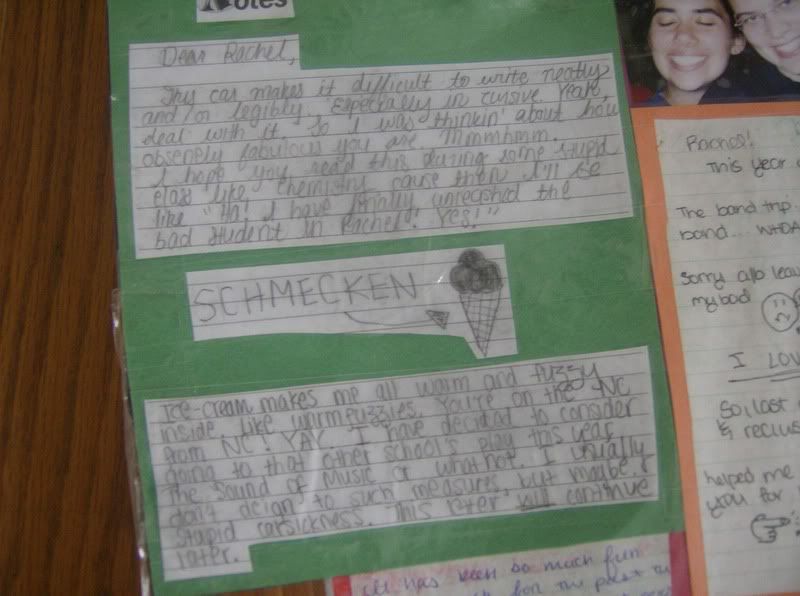 Notes
Dear Rachel,
Thy car makes it difficult to write neatly
and/or legibly. Especially in cursive. Yeah,
deal with it. So I was thinkin' about how
obsenely fabulous you are. Mmmhmm.
I hope you read this during some stupid
class like Chemistry cause then I'll be
like "Ha! I have finally unleashed the
bad student in Rachel! Yes!"
SCHMECKEN
Ice-cream makes me all warm and fuzzy
inside. Like warmfuzzies. You're on the NC
from NC! YAY. I have decided to consider
going to that other school's play this year
The Sound of Music or what not. I usually
don't deign to such measures, but maybe.
Stupid carsickness. This letter will continue
later.
Rachel!
This year
The band trip..
band... WHOA
Sorry
my bad
I LOV
So, last
& reclus
helped me
you for
It has been so much fun
for the past